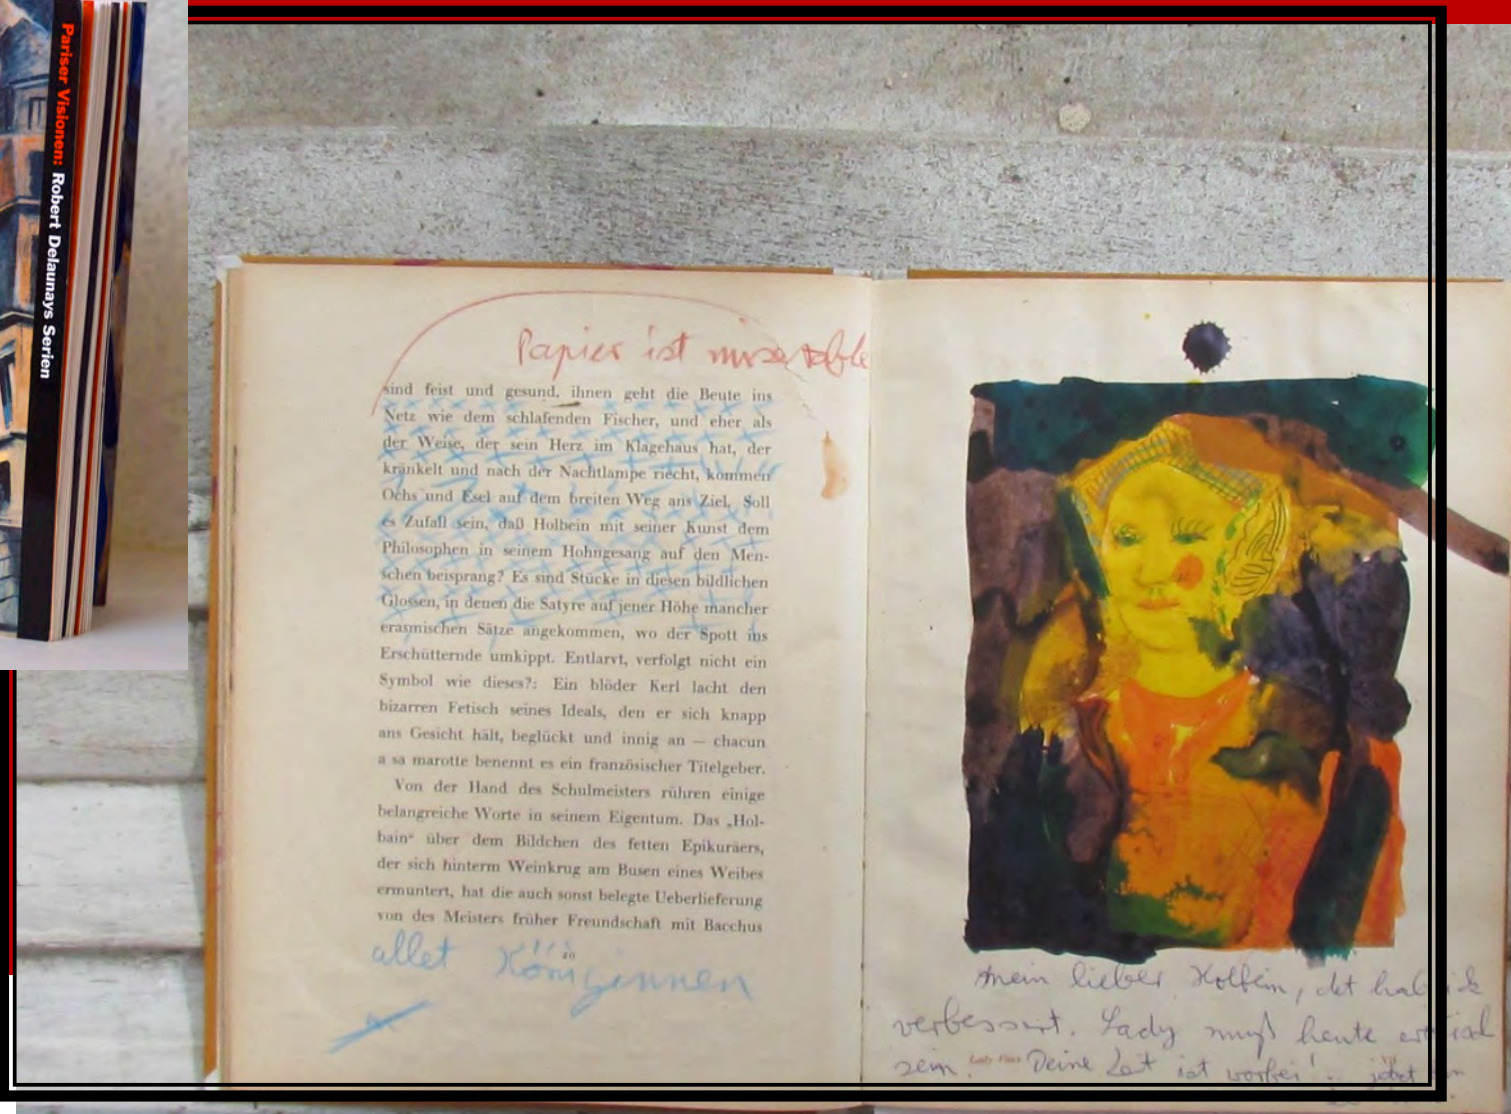 Pariser Visionen: Robert Delaunays Serien
Papier ist miserable
sind feist und gesund, ihnen geht die Beute ins
Netz wie dem schlafenden Fischer, und eher als
der Weise, der sein Herz im Klagehaus hat, der
kränkelt und nach der Nachtlampe riecht, kommen
Ochs und Esel auf dem breiten Weg ans Ziel. Soll
es Zufall sein, daß Holbein mit seiner Kunst dem
Philosophen in seinem Hohngesang auf den Men-
schen beisprang? Es sind Stücke in diesen bildlichen
Glossen, in denen die Satyre auf jener Höhe mancher
erasmischen Sätze angekommen, wo der Spott ins
Erschütternde umkippt. Entlarvt, verfolgt nicht ein
Symbol wie dieses?: Ein blöder Kerl lacht den
bizarren Fetisch seines Ideals, den er sich knapp
ans Gesicht hält, beglückt und innig an — chacun
a sa marotte benennt es ein französischer Titelgeber.
Von der Hand des Schulmeisters rühren einige
belangreiche Worte in seinem Eigentum. Das „Hol-
bain“ über dem Bildchen des fetten Epikuräers,
der sich hinterm Weinkrug am Busen eines Weibes
ermuntert, hat die auch sonst belegte Ueberlieferung
von des Meisters früher Freundschaft mit Bacchus
20
allet Königinnen
mein lieber Holbein, det hab ick
verbessert. Lady muß heute erotisch
sein. Deine Zeit ist vorbei! jetzt